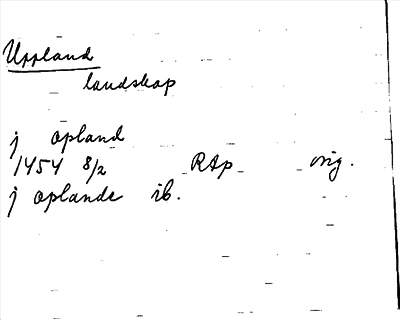 Uppland
landskap
j opland
1454 8/2 RAp orig.
j oplande ib.